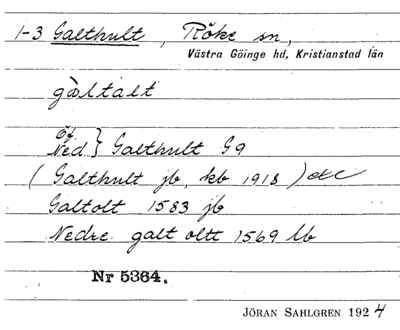 1-3 Galthult, Röke sn,
Västra Göinge hd, Kristianstad län
gàltalt
Öf.
Ned. } Galthult G9
( Galthult jb, kb 1918 ) etc
Galtolt 1583 jb
Nedre galt oltt 1569 lb
Nr 5364.
JÖRAN SAHLGREN 1924